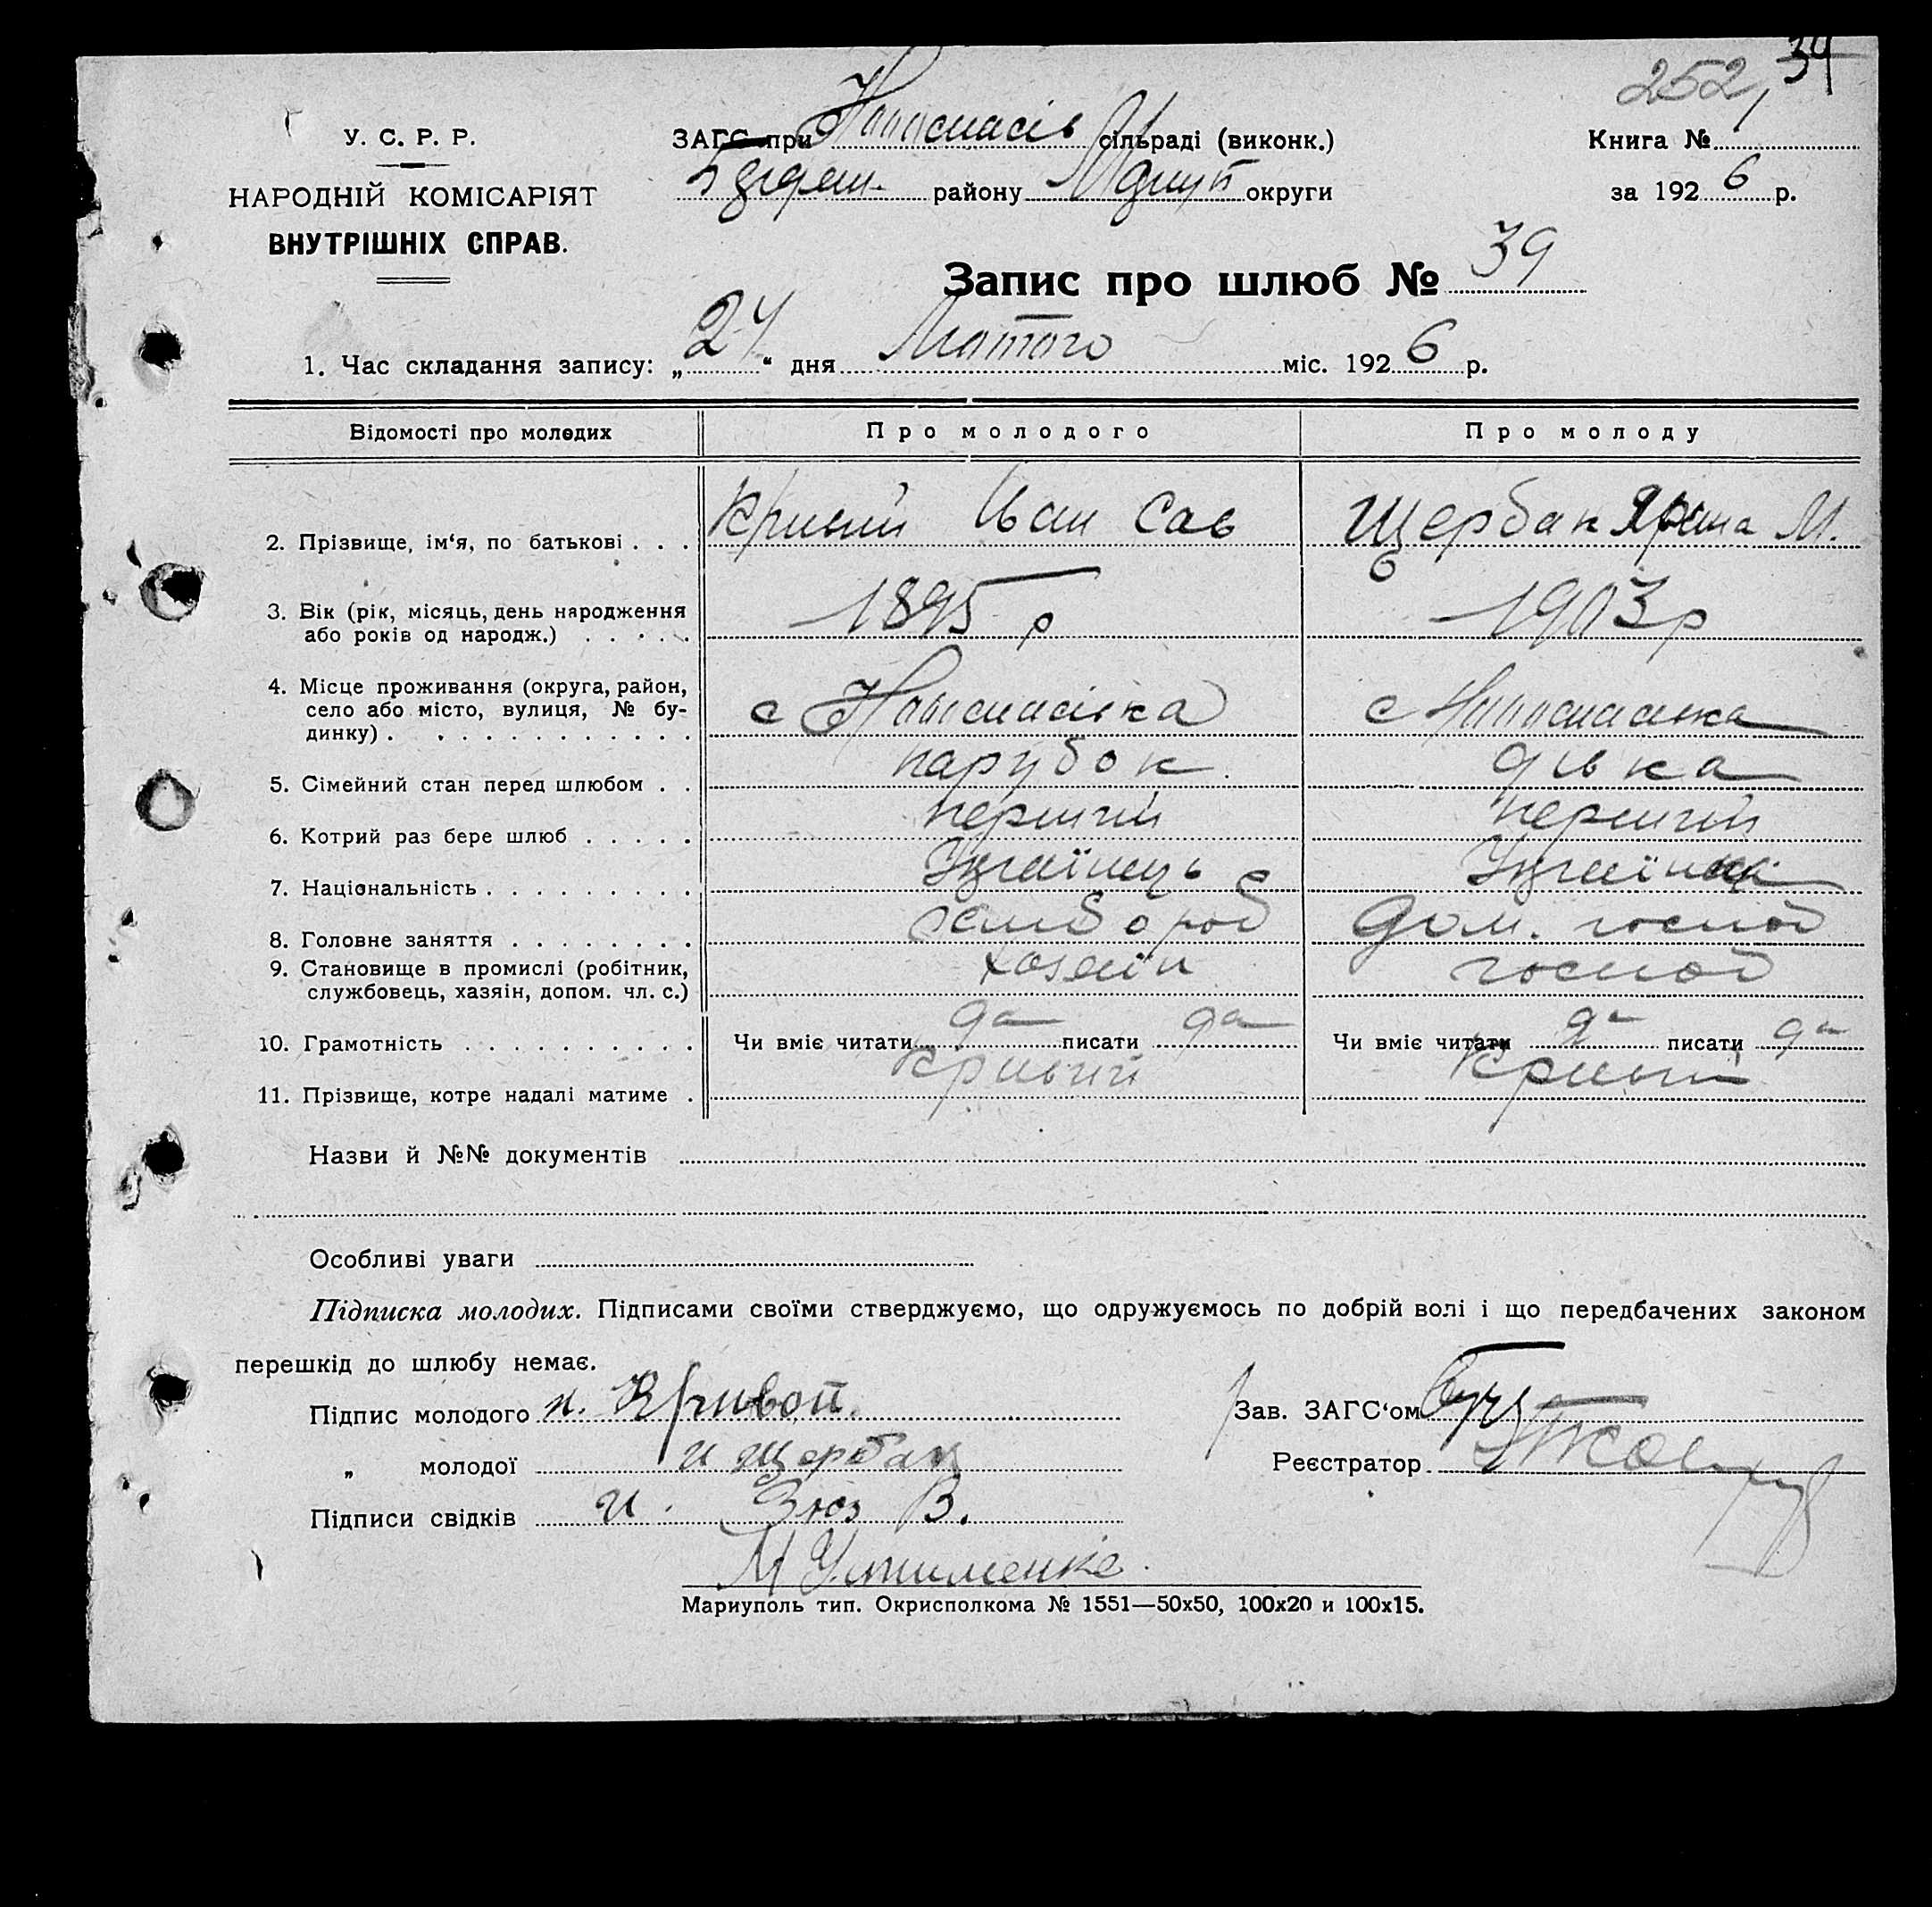 252, 39
У. С. Р. Р.
НАРОДНІЙ КОМІСАРІЯТ
ВНУТРІШНІХ СПРАВ.
ЗАГС при Новоспасів сільраді (виконк.)
району округи
Книга № 1
за 1926 р.
Запис про шлюб № 39
1. Час складання запису: „24“ дня Лютого міс. 1926 р.
Відомості про молодих Про молодого Про молоду
2. Прізвище, ім‘я, по батькові . . . Кривий Іван Сав Щербак Ярина М.
3. Вік (рік, місяць, день народження
або років од народж.) . . . . . 1895 р 1903 р
4. Місце проживання (округа, район,
село або місто, вулиця, № бу-
динку) . . . . . . . . . . . . . с Новоспасівка с Новоспасівка
5. Сімейний стан перед шлюбом . . парубок дівка
6. Котрий раз бере шлюб . . . . . перший перший
7. Національність . . . . . . . . . Українець Українка
8. Головне заняття . . . . . . . . хлібороб дом. господ
9. Становище в промислі (робітник,
службовець, хазяін, допом. чл. с.) хозяїн господ
10. Грамотність . . . . . . . . . . Чи вміє читати да писати да Чи вміє читати да писати да
11. Прізвище, котре надалі матиме . Кривий Кривий
Назви й №№ документів
Особливі уваги
Підписка молодих. Підписами своїми стверджуємо, що одружуємось по добрій волі і що передбачених законом
перешкід до шлюбу немає.
Підпис молодого и. Кривой.
„ молодої и Щербак
Підписи свідків и. Зюз В.
М Устименко.
Зав. ЗАГС‘ом
Реєстратор
Мариуполь тип. Окрисполкома № 1551—50х50, 100х20 и 100х15.